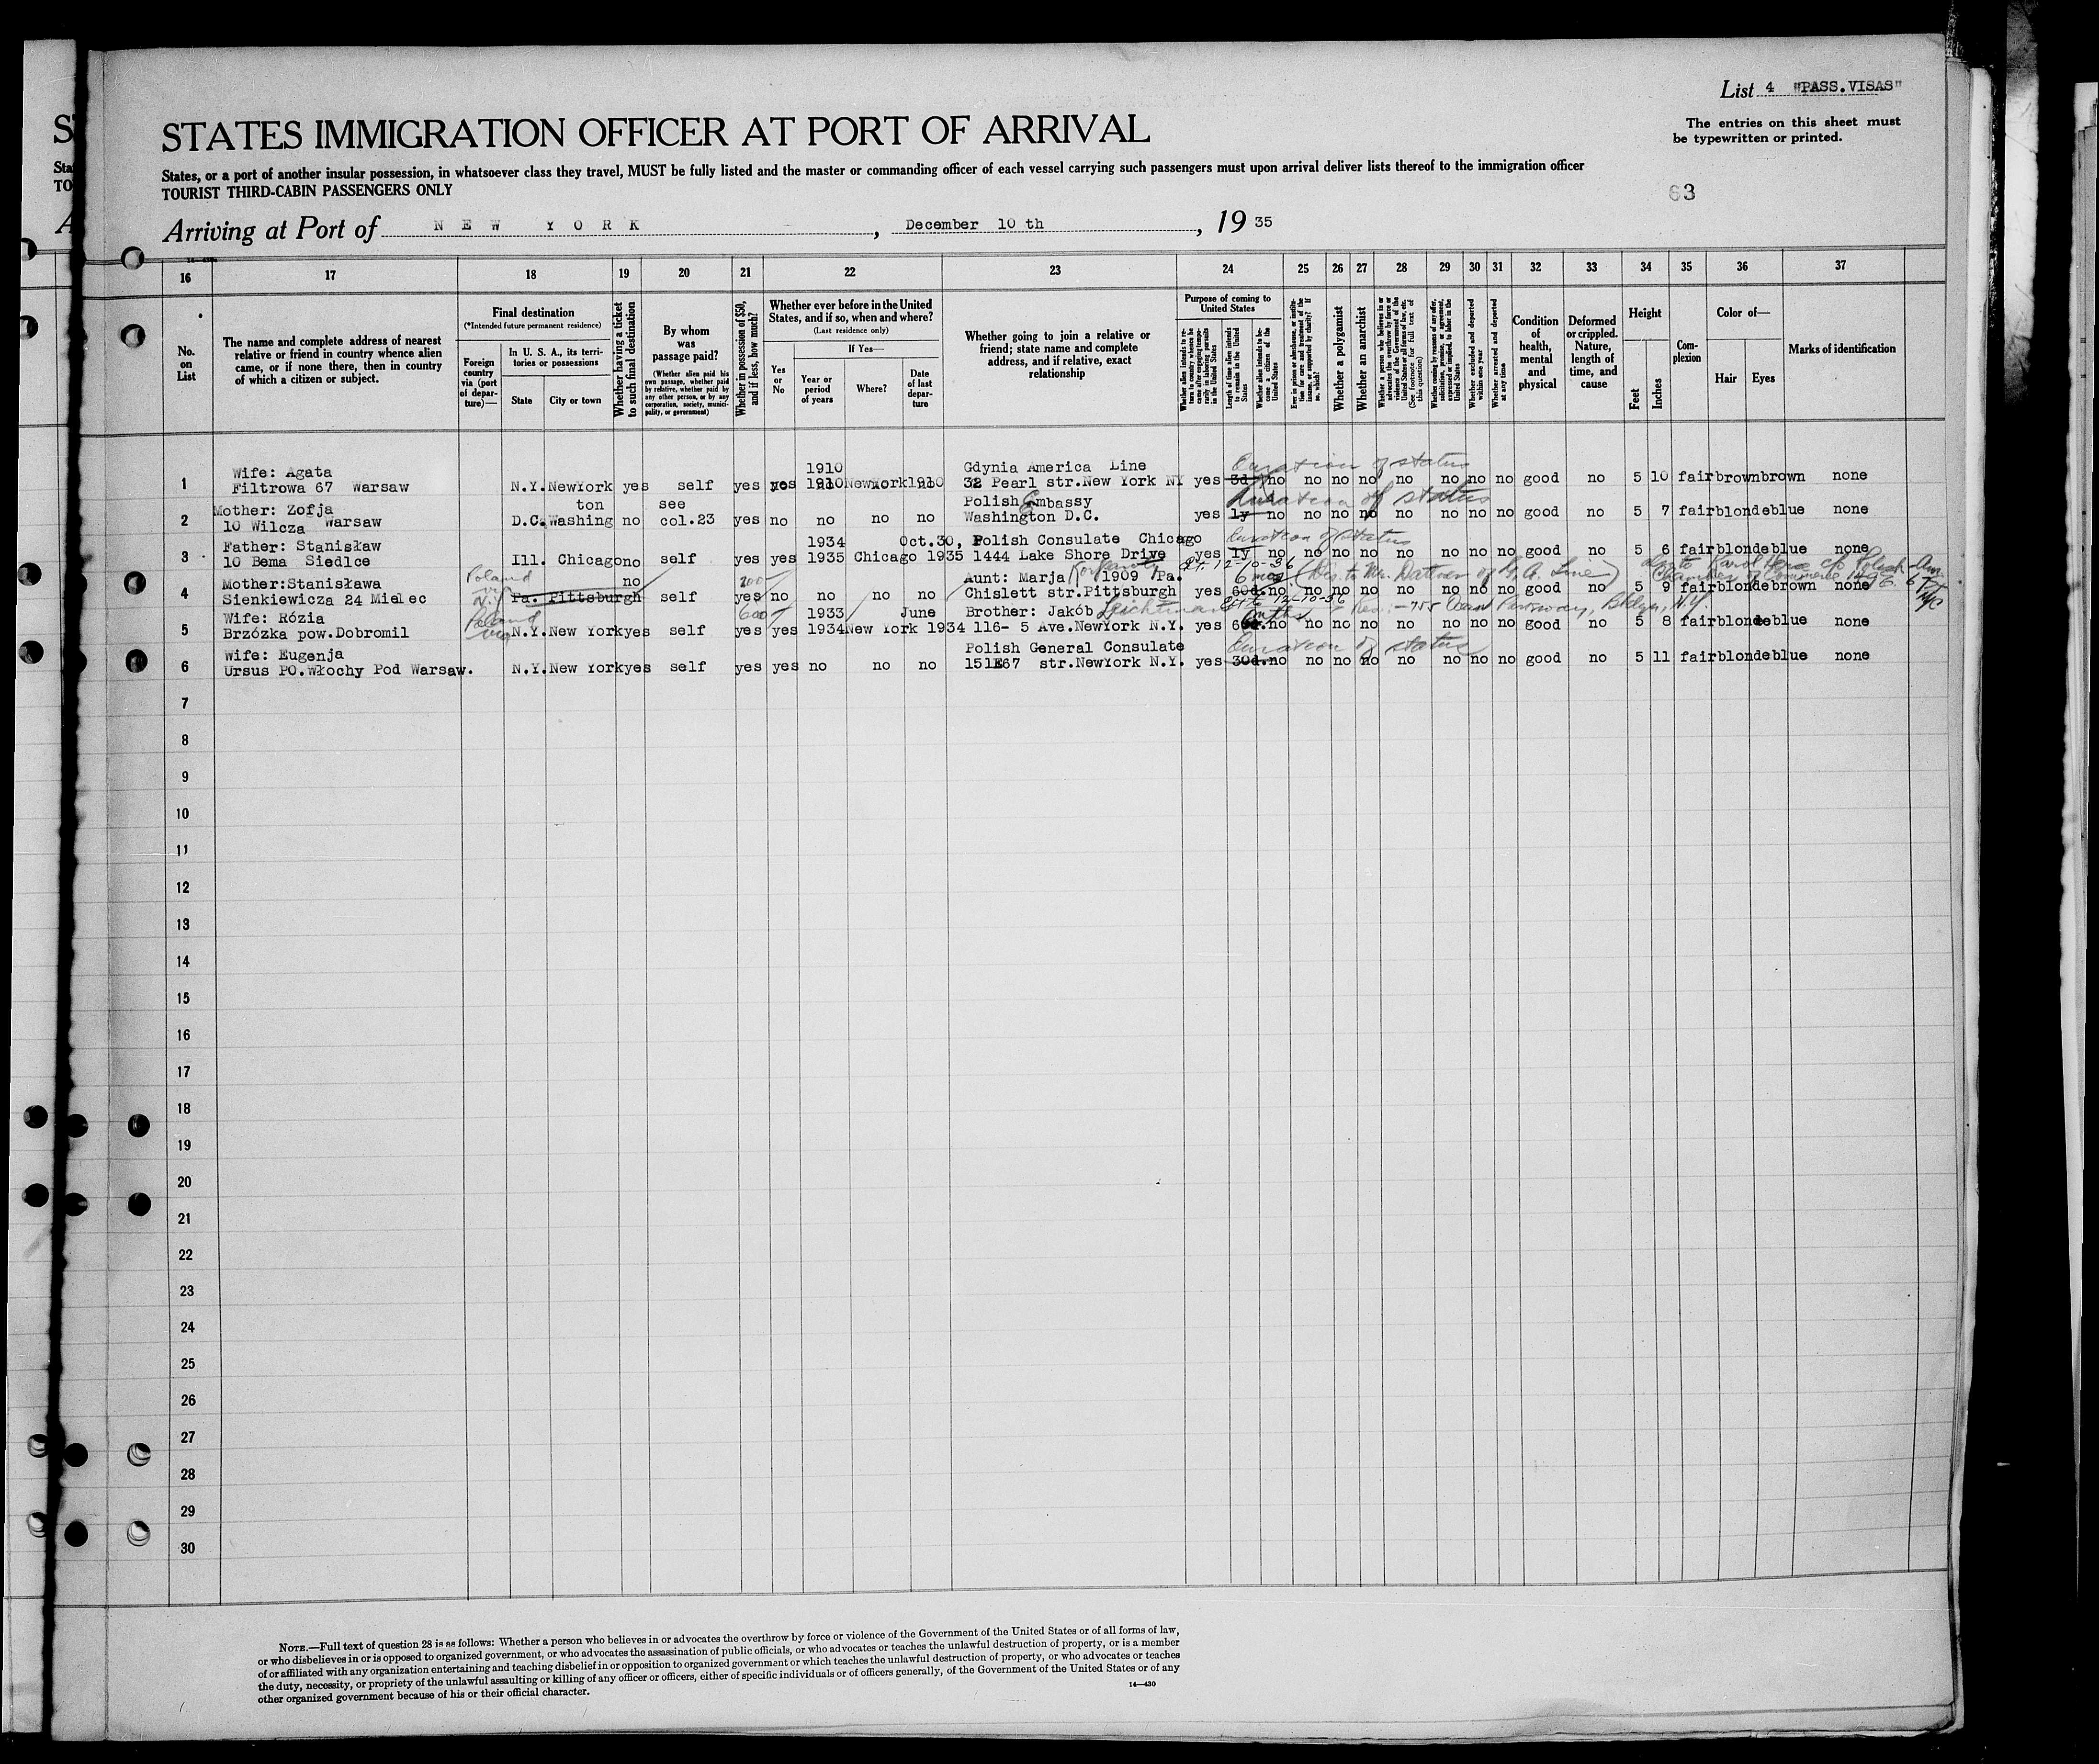 List 4 "PASS.VISAS"
STATES IMMIGRATION OFFICER AT PORT OF ARRIVAL
The entries on this sheet must
be typewritten or printed.
States, or a port of another insular possession, in whatsoever class they travel, MUST be fully listed and the master or commanding officer of each vessel carrying such passengers must upon arrival deliver lists thereof to the immigration officer
TOURIST THIRD-CABIN PASSENGERS ONLY
63
Arriving at Port of N E W Y O R K , December 10 th , 19 35
16 17 18 19 20 21 22 23 24 25 26 27 28 29 30 31 32 33 34 35 36 37
No. on List
The name and complete address of nearest
relative or friend in country whence alien
came, or if none there, then in country
of which a citizen or subject.
Final destination
(*Intended future permanent residence)
Foreign country via (port of departure)—
In U. S. A., its territories or possessions
State
City or town
Whether having a ticket to such final destination
By whom was passage paid?
(Whether alien paid his own passage, whether paid by relative, whether paid by any other person, or by any corporation, society, municipality, or government)
Whether in possession of $50, and if less, how much?
Whether ever before in the United
States, and if so, when and where?
(Last residence only)
Yes or No
If Yes—
Year or period of years
Where?
Date of last departure
Whether going to join a relative or
friend; state name and complete
address, and if relative, exact
relationship
Purpose of coming to United States
Length of time alien intends to remain in the United States
Whether alien intends to become a citizen of the United States
Whether a polygamist
Whether an anarchist
(See footnote for full text of this question)
Whether excluded and deported within one year
Whether arrested and deported at any time
Condition of health, mental and physical
Deformed or crippled. Nature, length of time, and cause
Height
Feet
Inches
Complexion
Color of—
Hair
Eyes
Marks of identification
Wife: Agata 1910 Gdynia America Line Duration of status
1 Filtrowa 67 Warsaw N.Y. NewYork yes self yes yes 1910 NewYork 1910 32 Pearl str.New York NY yes 3d. no no no no no no no no good no 5 10 fair brown brown none
Mother: Zofja ton see Polish Embassy Duration of status
2 10 Wilcza Warsaw D.C. Washing no col.23 yes no no no no Washington D.C. yes 1y no no no no no no no no good no 5 7 fair blonde blue none
Father: Stanisław 1934 Oct.30, Polish Consulate Chicago Duration of status
3 10 Bema Siedlce Ill. Chicago no self yes yes 1935 Chicago 1935 1444 Lake Shore Drive yes 1y no no no no no no no no good no 5 6 fair blonde blue none
Mother:Stanisława Poland no 200 Aunt: Marja 1909 Pa. 12-10-36 6 mos
4 Sienkiewicza 24 Mielec N.Y. Pa. Pittsburgh self yes no no no no Chislett str.Pittsburgh yes 60d. no no no no no no no no good no 5 9 fair blonde brown none
Wife: Rózia Poland 600 1933 June Brother: Jakób Leichtman 12-10-36
5 Brzózka pow.Dobromil N.Y. New York yes self yes yes 1934 New York 1934 116- 5 Ave.NewYork N.Y. yes no no no no no no no no good no 5 8 fair blonde blue none
Wife: Eugenja Polish General Consulate Duration of status
6 Ursus PO.Włochy Pod Warsaw. N.Y. New York yes self yes yes no no no 151E67 str.NewYork N.Y. yes 30d. no no no no no no no no good no 5 11 fair blonde blue none
7
8
9
10
11
12
13
14
15
16
17
18
19
20
21
22
23
24
25
26
27
28
29
30
NOTE.—Full text of question 28 is as follows: Whether a person who believes in or advocates the overthrow by force or violence of the Government of the United States or of all forms of law,
or who disbelieves in or is opposed to organized government, or who advocates the assassination of public officials, or who advocates or teaches the unlawful destruction of property, or is a member
of or affiliated with any organization entertaining and teaching disbelief in or opposition to organized government or which teaches the unlawful destruction of property, or who advocates or teaches
the duty, necessity, or propriety of the unlawful assaulting or killing of any officer or officers, either of specific individuals or of officers generally, of the Government of the United States or of any
other organized government because of his or their official character.
14—430